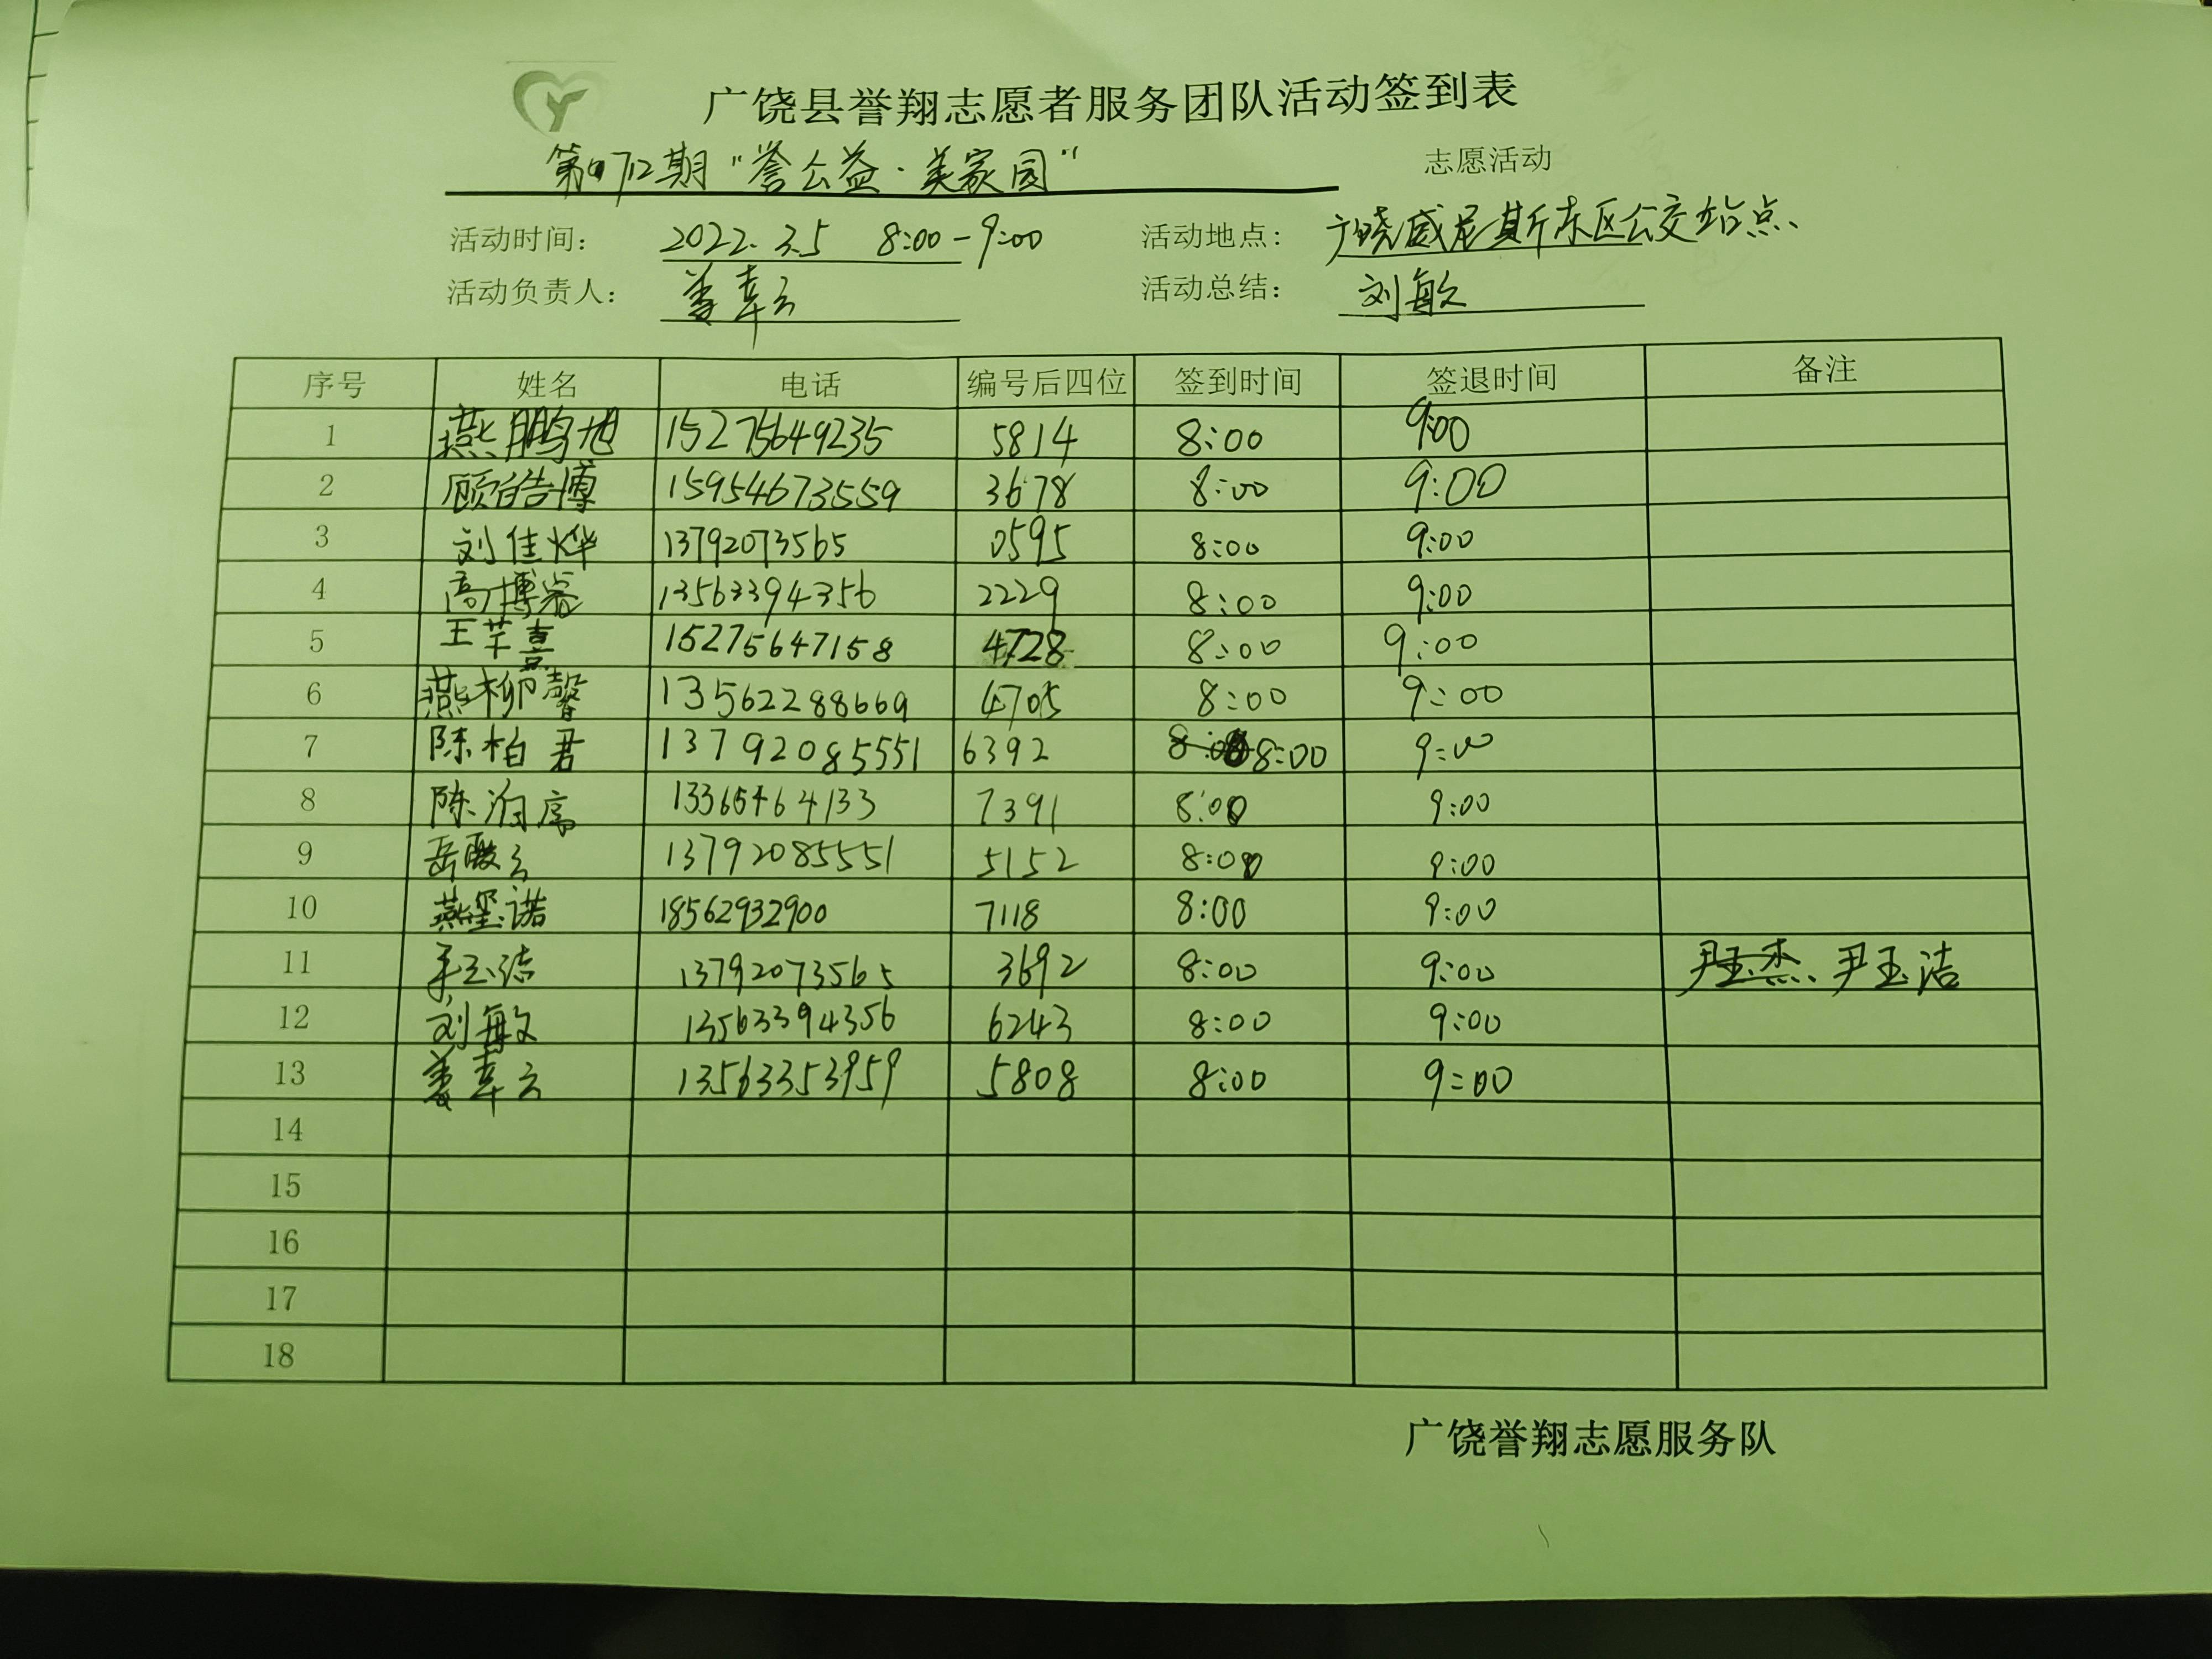 广饶县誉翔志愿者服务团队活动签到表
第712期“誉公益·美家园” 志愿活动
活动时间: 2022.3.5 8:00-9:00 活动地点: 广饶威尼斯东区公交站点、
活动负责人: 姜幸云 活动总结: 刘敏
序号 姓名 电话 编号后四位 签到时间 签退时间 备注
1 燕鹏旭 15275649235 5814 8:00 9:00
2 顾皓博 15954673559 3678 8:00 9:00
3 刘佳烨 13792073565 0595 8:00 9:00
4 高博容 13563394356 2229 8:00 9:00
5 王芊喜 15275647158 4728 8:00 9:00
6 燕柳馨 13562288669 4705 8:00 9:00
7 陈柏君 13792085551 6392 8:00 9:00
8 陈 13365464133 7391 8:00 9:00
9 岳 云 13792085551 5152 8:00 9:00
10 燕玺诺 18562932900 7118 8:00 9:00
11 尹玉洁 13792073565 3692 8:00 9:00 尹玉杰、尹玉洁
12 刘敏 13563394356 6243 8:00 9:00
13 姜幸云 13563353959 5808 8:00 9:00
14
15
16
17
18
广饶誉翔志愿服务队